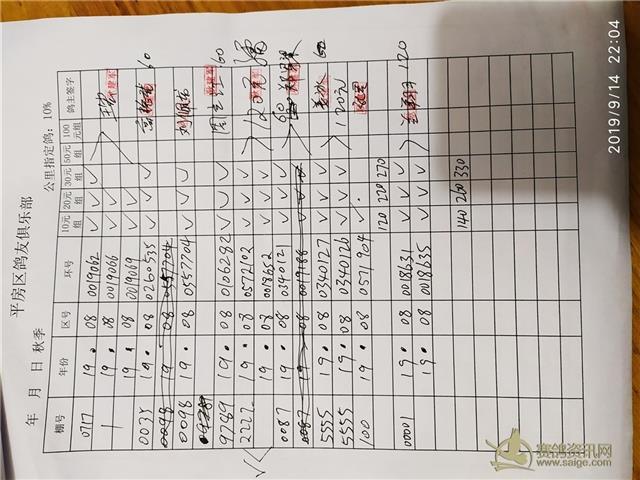 平房区鸽友俱乐部
年 月 日 秋季 公里指定鸽: 10%
棚号 年份 区号 环号 10元组 20元组 30元组 50元组 100元组 鸽主签字
0717 19. 08 0019062 ✓ ✓ ✓
19. 08 0019066 ✓ ✓ ✓
19. 08 0019069 ✓ ✓ ✓
0035 19. 08 0260535 ✓ ✓ ✓ 60
0098 19. 08 0557704
0098 19. 08 0557704 ✓ ✓ ✓
9789 19. 08 0106282 ✓ ✓ ✓ 60
2222 19. 08 0572102 ✓ ✓ ✓ 120元
19. 08 0018652 ✓ ✓ ✓
0087 19. 08 0340121 ✓ ✓ ✓ 60
0087 19. 08 0019188
5555 19. 08 0340127 ✓ ✓ ✓
5555 19. 08 0340126 ✓ ✓ ✓ 120元
100 19. 08 0571904 ✓
120 220 270
00001 19. 08 0018631 ✓ ✓ ✓ 120
19. 08 0018635 ✓ ✓ ✓
140 260 330
2019/9/14 22:04
赛鸽资讯网
www.saige.com